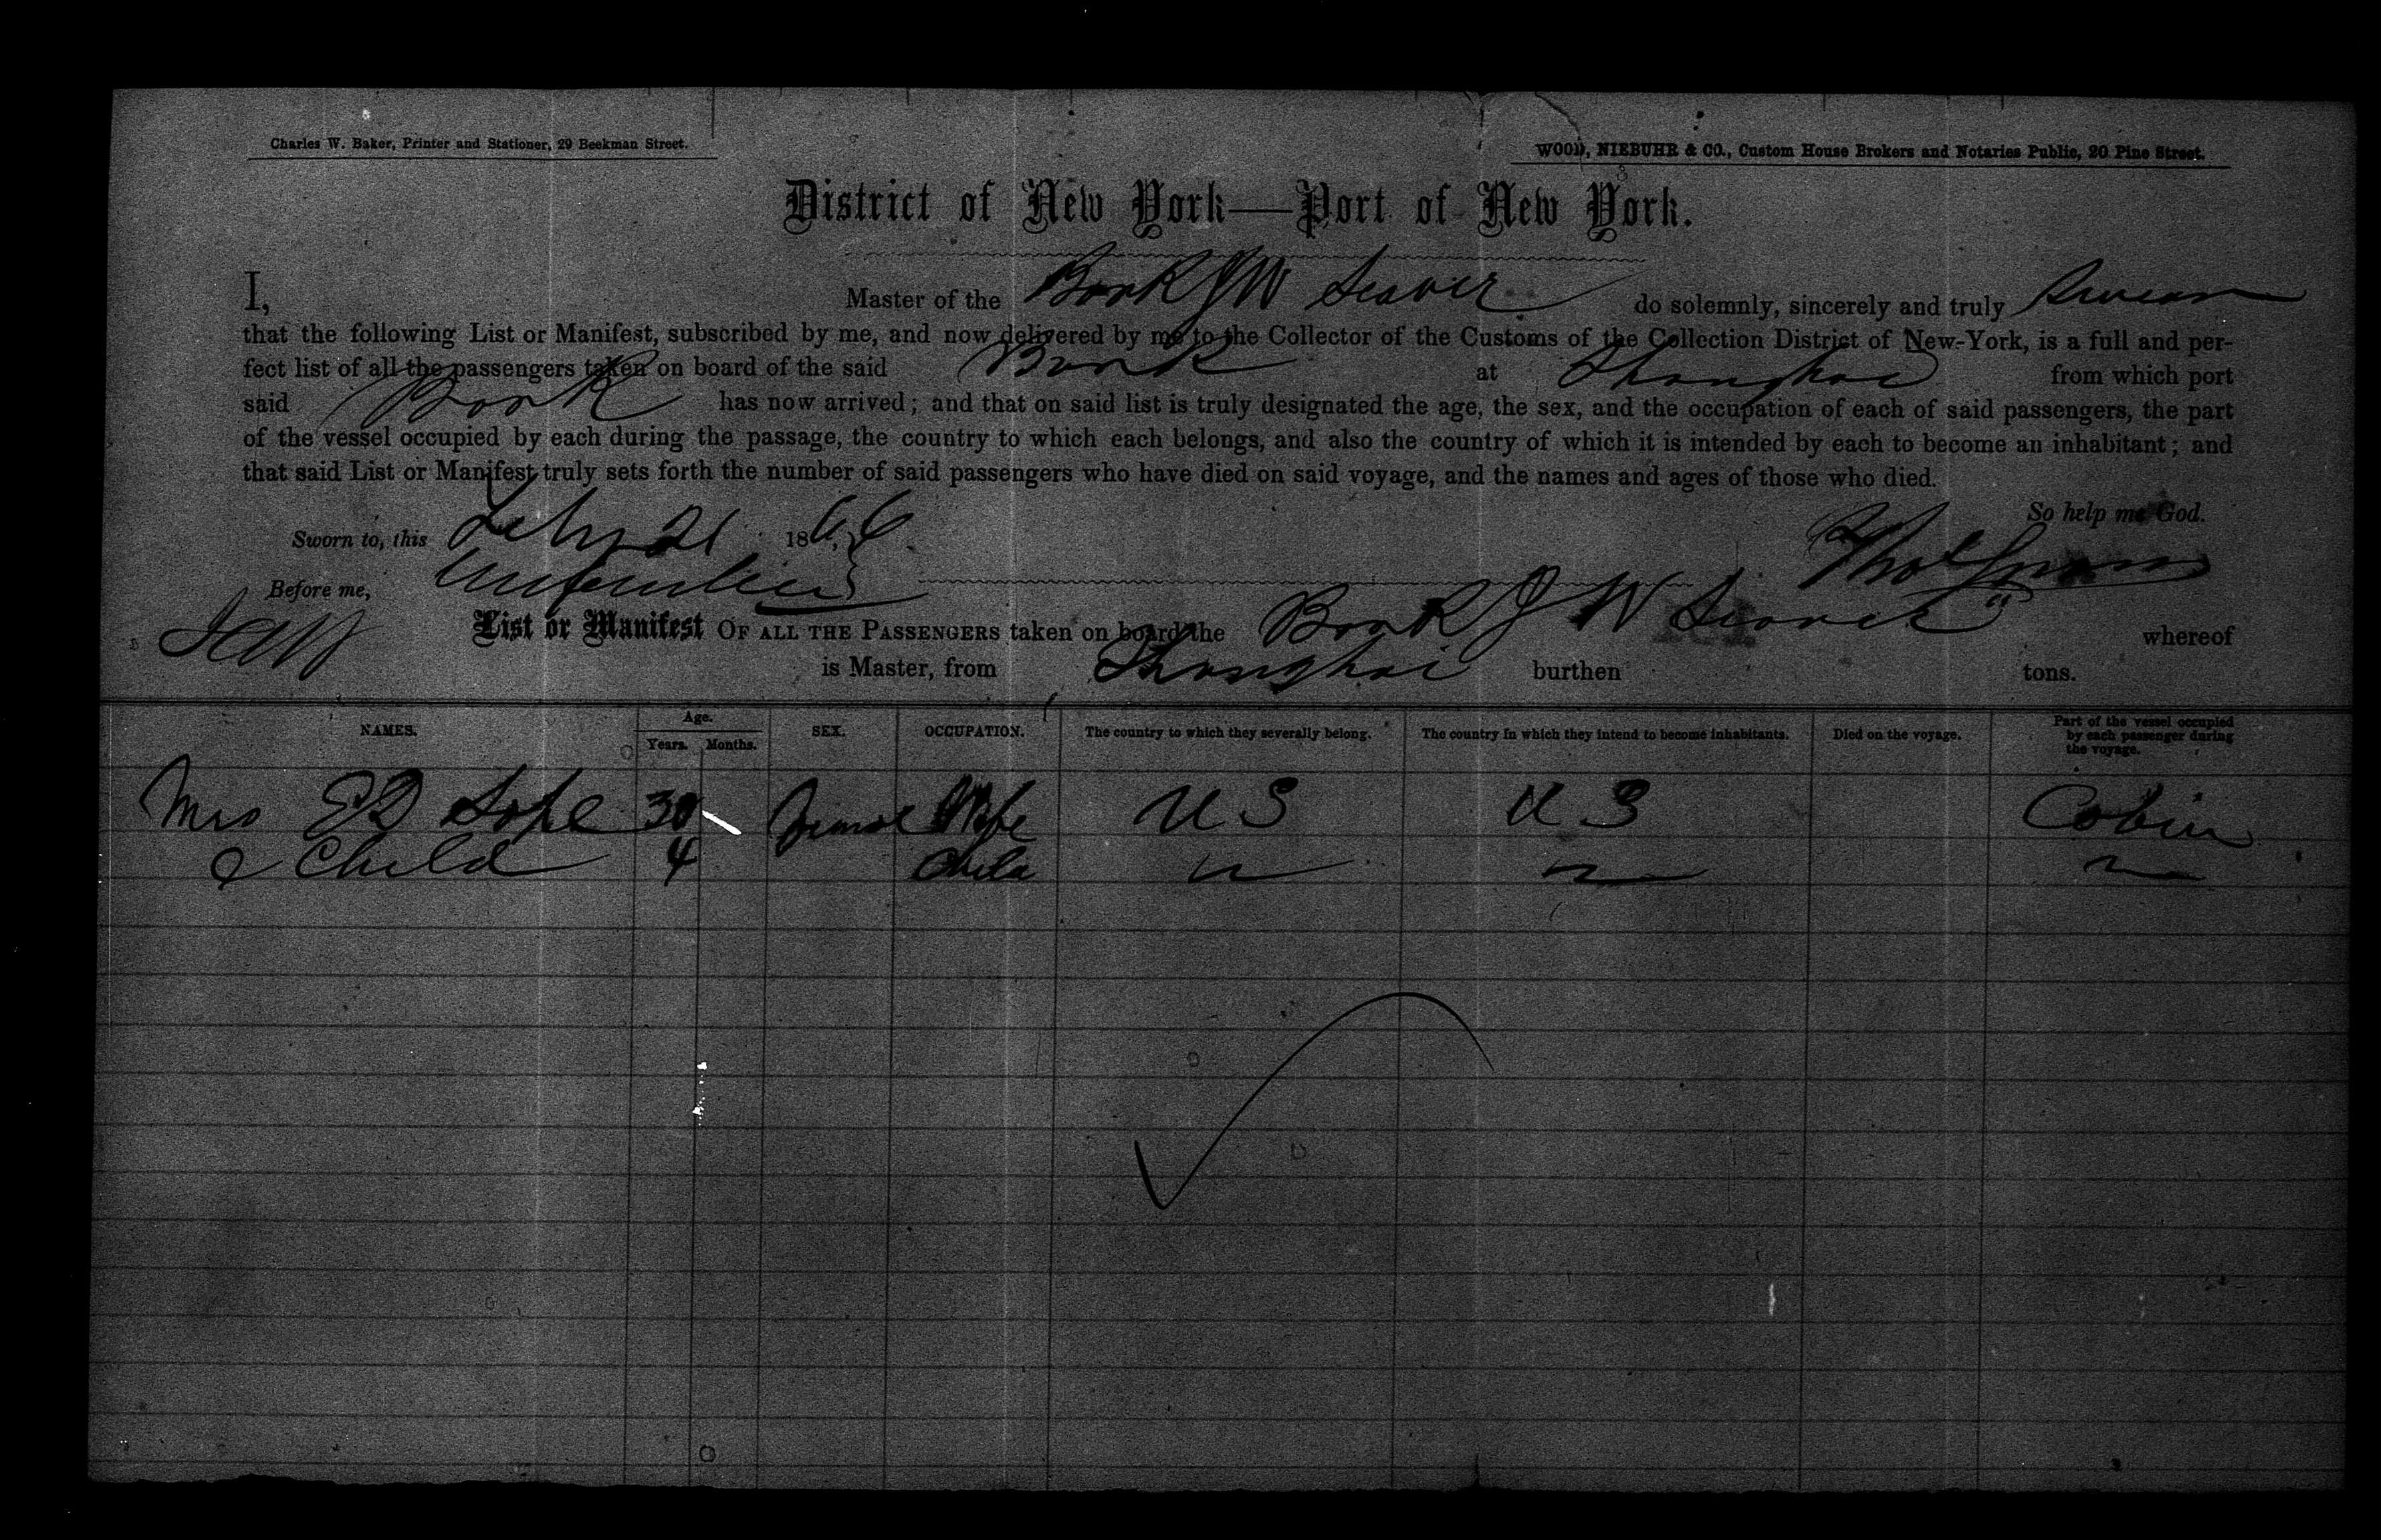 Charles W. Baker, Printer and Stationer, 29 Beekman Street.
WOOD, NIEBUHR & CO., Custom House Brokers and Notaries Public, 20 Pine Street.
District of New York—Port of New York.
I, Master of the Bark J W Seaver do solemnly, sincerely and truly Swear
that the following List or Manifest, subscribed by me, and now delivered by me to the Collector of the Customs of the Collection District of New-York, is a full and per-
fect list of all the passengers taken on board of the said Bark at Shanghae from which port
said Bark has now arrived; and that on said list is truly designated the age, the sex, and the occupation of each of said passengers, the part
of the vessel occupied by each during the passage, the country to which each belongs, and also the country of which it is intended by each to become an inhabitant; and
that said List or Manifest truly sets forth the number of said passengers who have died on said voyage, and the names and ages of those who died.
So help me God.
Sworn to, this Feby 21 1866
Before me,
List or Manifest OF ALL THE PASSENGERS taken on board the Bark J W Seaver whereof
is Master, from Shanghai burthen tons.
NAMES. Age. Years. Months. SEX. OCCUPATION. The country to which they severally belong. The country in which they intend to become inhabitants. Died on the voyage. Part of the vessel occupied by each passenger during the voyage.
Mrs 30 Female Wife U S U S Cabin
& Child 4 Child " " "